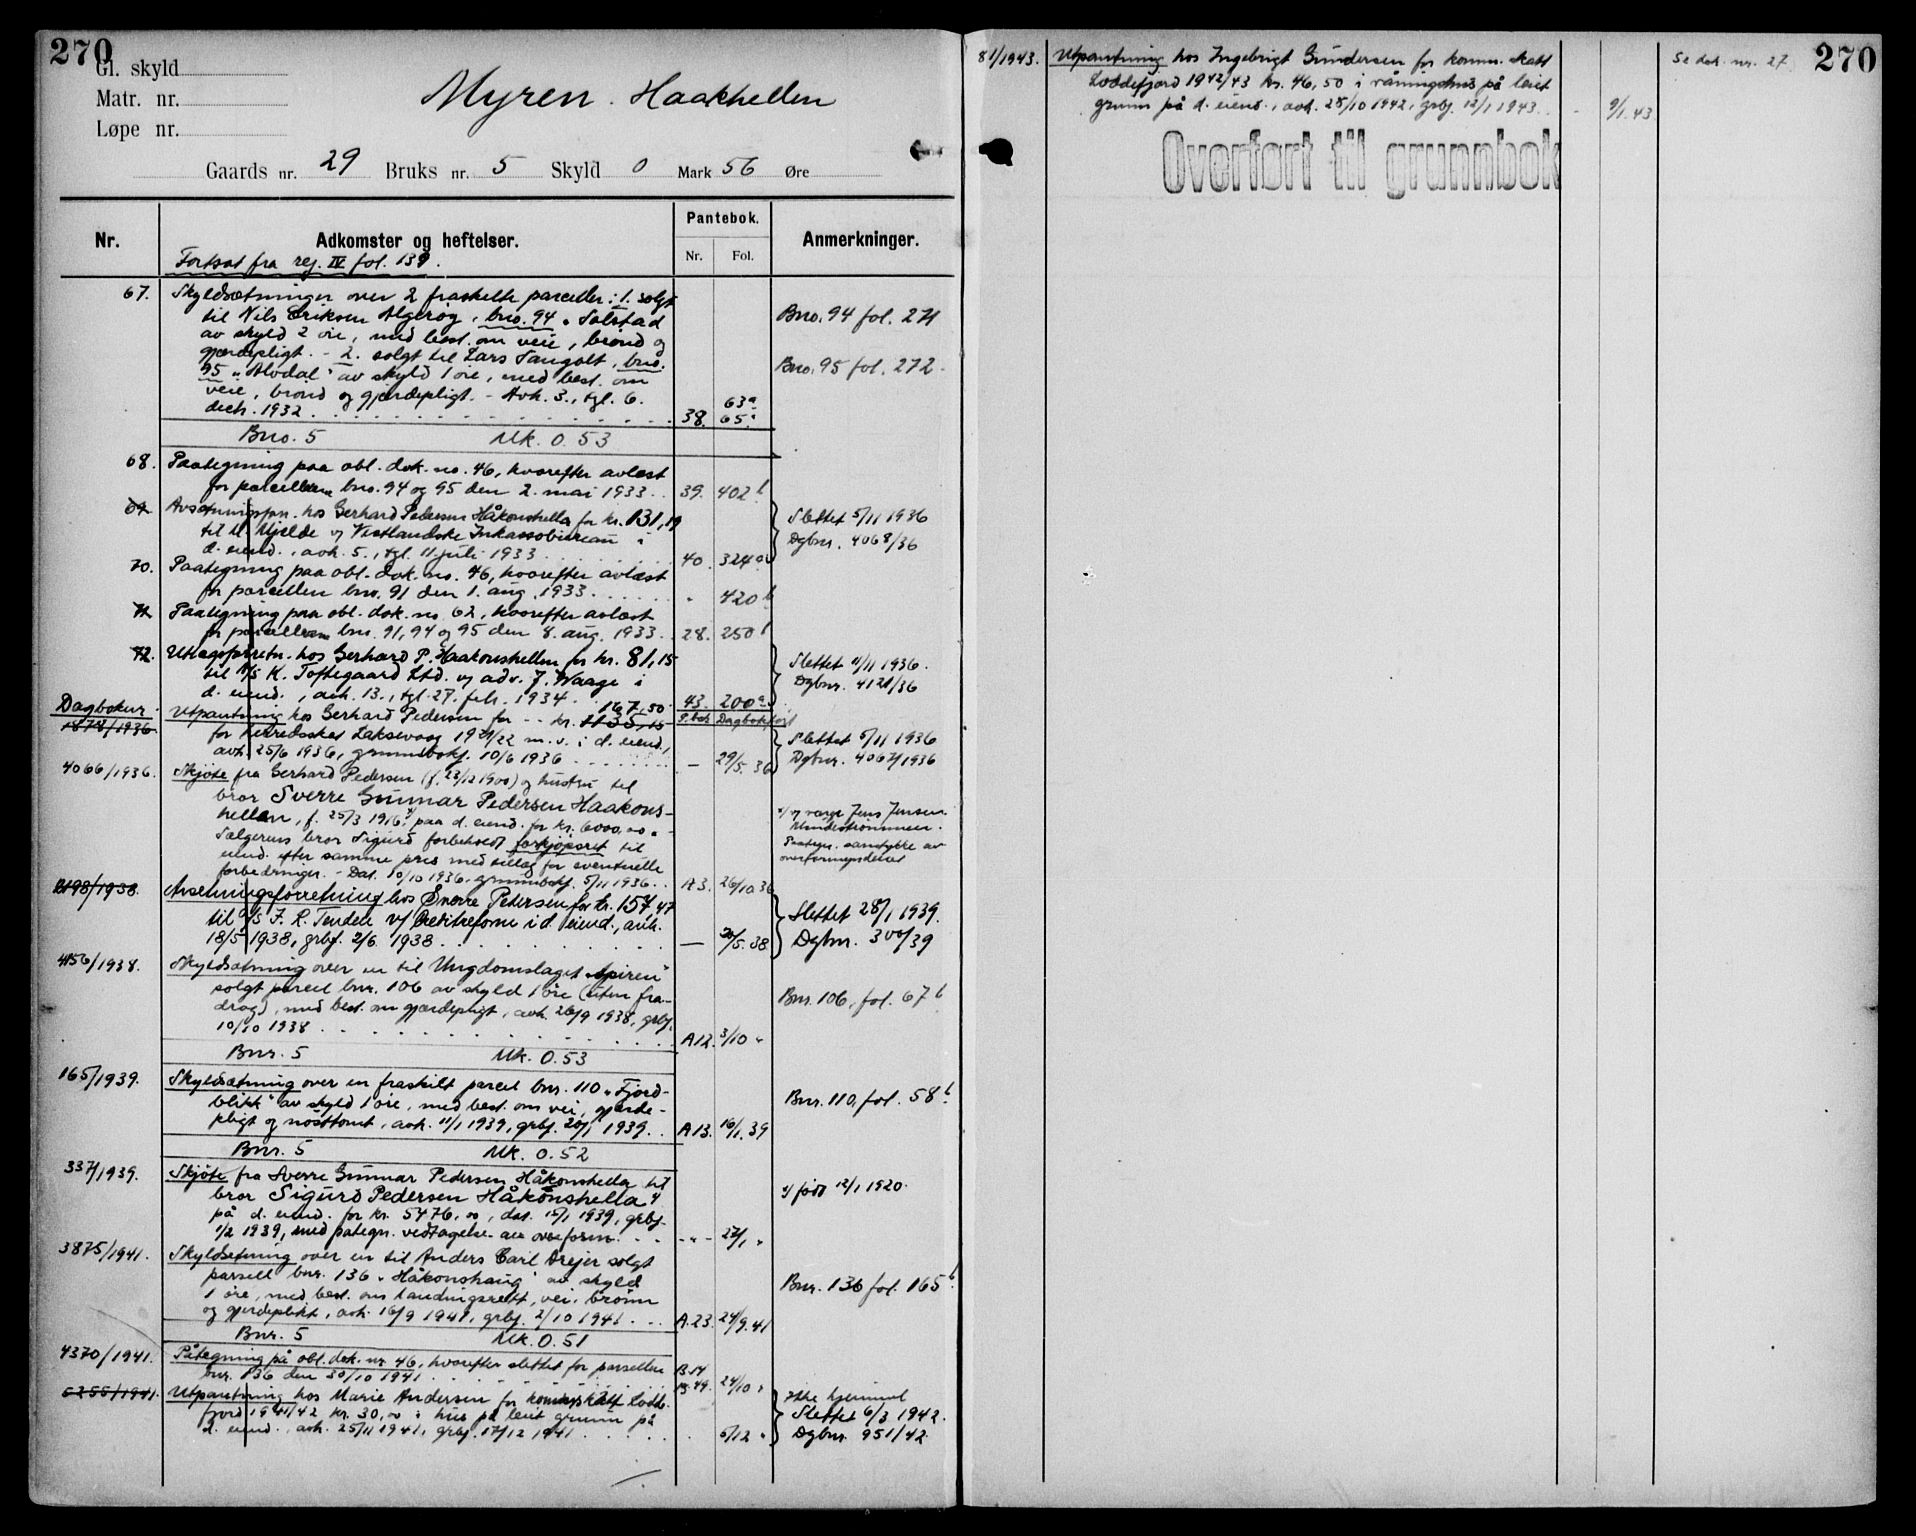 270
Gl. skyld
Matr. nr.
Løpe nr.
Myren. Haakhellen
Gaards nr. 29 Bruks nr. 5 Skyld 0 Mark 56 Øre
Nr.
Adkomster og heftelser.
Pantebok.
Nr. Fol.
Anmerkninger.
Fortsat fra reg. IV fol. 139.
67. Skyldsætninger over 2 fraskilte parceller: 1. solgt
til Nils Eriksen Algerøy, bno. 94 "Solstad Bno. 94 fol. 271
av skyld 2 øre, med best. om veie, brønd og
gjerdepligt. - 2. solgt til Lars Tangolt, bno.
95 "Alvdal" av skyld 1 øre, med best. om Bno. 95 fol. 272.
veie, brønd og gjerdepligt. - Avh. 3., tgl. 6. 63a
decb. 1932 38. 65.
Bno. 5 Mk. 0.53
68. Paategning paa obl. dok. no. 46, hvorefter avlæst
for parcellerne bno. 94 og 95 den 2. mai 1933 39. 402b
69. Avsetningsforr. hos Gerhard Pedersen Håkonshella for kr. 131,19 Slettet 5/11 1936
til H. Hjelde v/ Vestlandske Inkassobureau i Dgbnr. 4068/36
d. eiend., avh. 5., tgl. 11. juli 1933 40. 324a
70. Paategning paa obl. dok. no. 46, hvorefter avlæst
for parcellen bno. 91 den 1. aug. 1933 " 420b
71. Paategning paa obl. dok. no. 62, hvorefter avlæst
for parcellerne bno. 91, 94 og 95 den 8. aug. 1933 28. 250b
72. Utlægsforretn. hos Gerhard P. Haakonshellen for kr. 81,15 Slettet 11/11 1936.
til A/S K. Toftegaard Ltd. v/ adv. J. Waage i Dgbnr. 4121/36
d. eiend., avh. 13., tgl. 27. feb. 1934 43. 200a
Dagboknr. 167,50 P.bok Dagbokført
1878/1936 Utpantning hos Gerhard Pedersen for -- kr. 1135,15
for herredsskat Laksevaag 1921/22 m. v. i d. eiend., Slettet 5/11 1936
avh. 25/6 1936, grunnbokf. 10/6 1936 — 29/5. 36 Dgbnr. 4067/1936
4066/1936. Skjøte fra Gerhard Pedersen (f. 23/12 1900) og hustru til
bror Sverre Gunnar Pedersen Haakons-
hellen, f. 25/3 1916, paa d. eiend. for kr. 6000,00. v/ verge Jens Jensen
Sælgerens bror Sigurd forbeholdt forkjøpsret til
eiend. efter samme pris med tillæg for eventuelle Paategn. samtykke av
forbedringer. - Dat. 10/10 1936. grunnbokf. 5/11 1936 A3. 26/10 36 overformynderiet
2198/1938. Avsetningsforretning hos Sverre Petersen for kr. 157,47
til A/S F. R. Tenden v/ Creditreform i d. eiend., avh. Slettet 28/1 1939.
18/5 1938, grbf. 2/6 1938 — 30/5. 38 Dgbnr. 300/39
4156/1938. Skyldsætning over en til Ungdomslaget "Spiren"
solgt parcel bnr. 106 av skyld 1 øre (uten fra- Bnr. 106, fol. 67b
drag), med best. om gjærdepligt, avh. 26/9 1938, grbf.
10/10 1938 A12. 3/10 "
Bnr. 5 Mk. 0.53
165/1939. Skyldsætning over en fraskilt parcel bnr. 110 "Fjord-
blikk" av skyld 1 øre, med best. om vei, gjerde- Bnr. 110, fol. 58b
pligt og nøsttomt, avh. 11/1 1939, grbf. 20/1 1939 A13. 16/1. 39
Bnr. 5 Mk. 0.52
337/1939. Skjøte fra Sverre Gunnar Pedersen Håkonshella til
bror Sigurd Pedersen Håkonshella 1) 1) født 12/1 1920.
på d. eiend. for kr. 5476,00, dat. 15/1 1939, grbf.
1/2 1939, med pategn. vedtagelse av overform. -"- 27/1 "
3875/1941. Skyldsetning over en til Anders Carl Drejer solgt
parsell bnr. 136 "Håkonshaug" av skyld Bnr. 136 fol. 165b
1 øre, med best. om landingsrett, vei, brønn
og gjerdeplikt, avh. 16/9 1941, grbf. 2/10 1941 A.23. 24/9. 41
Bnr. 5 Mk. 0.51
4370/1941. Påtegning på obl. dok. nr. 46, hvorefter slettet for parsellen B 54
bnr. 136 den 30/10 1941 B.49. 24/10 "
5255/1941. Utpantning hos Marie Andersen for kommuneskatt Lodde- Ikke hjemmel
fjord 1941/42 kr. 30,00 i hus på leiet grunn på Slettet 6/3 1942.
d. eiend., avh. 25/11 1941, grbf. 17/12 1941 5/12 " Dgbnr. 951/42
270
81/1943. Utpantning hos Ingebrigt Gundersen for komm. skatt Se dok. nr. 27
Loddefjord 1942/43 kr. 46,50 i våningshus på leiet
grunn på d. eiend., avh. 28/10 1942, grbf. 12/1 1943. - 9/1. 43
Overført til grunnbok